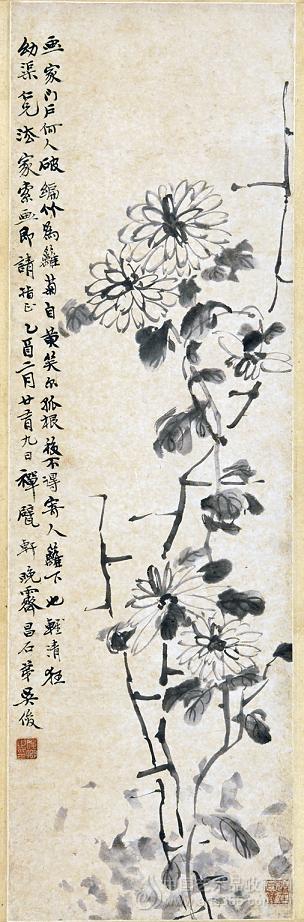 画家门户何人破编竹为篱菊自黄笑尔孤根拔不得寄人篱下也轻清狂
幼渠仁兄法家索画即请指正乙酉二月廿有九日禅甓轩晚霁昌石弟吴俊